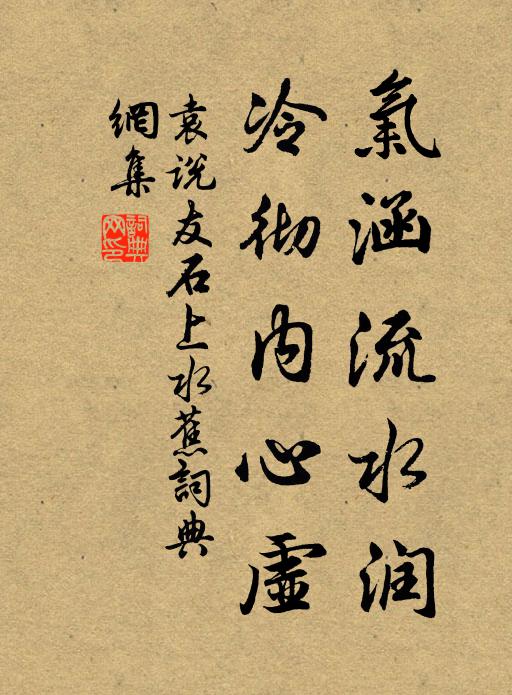 氣涵流水润
冷彻内心虛
袁说友石上水蕉詞典
網集
詞典
网印